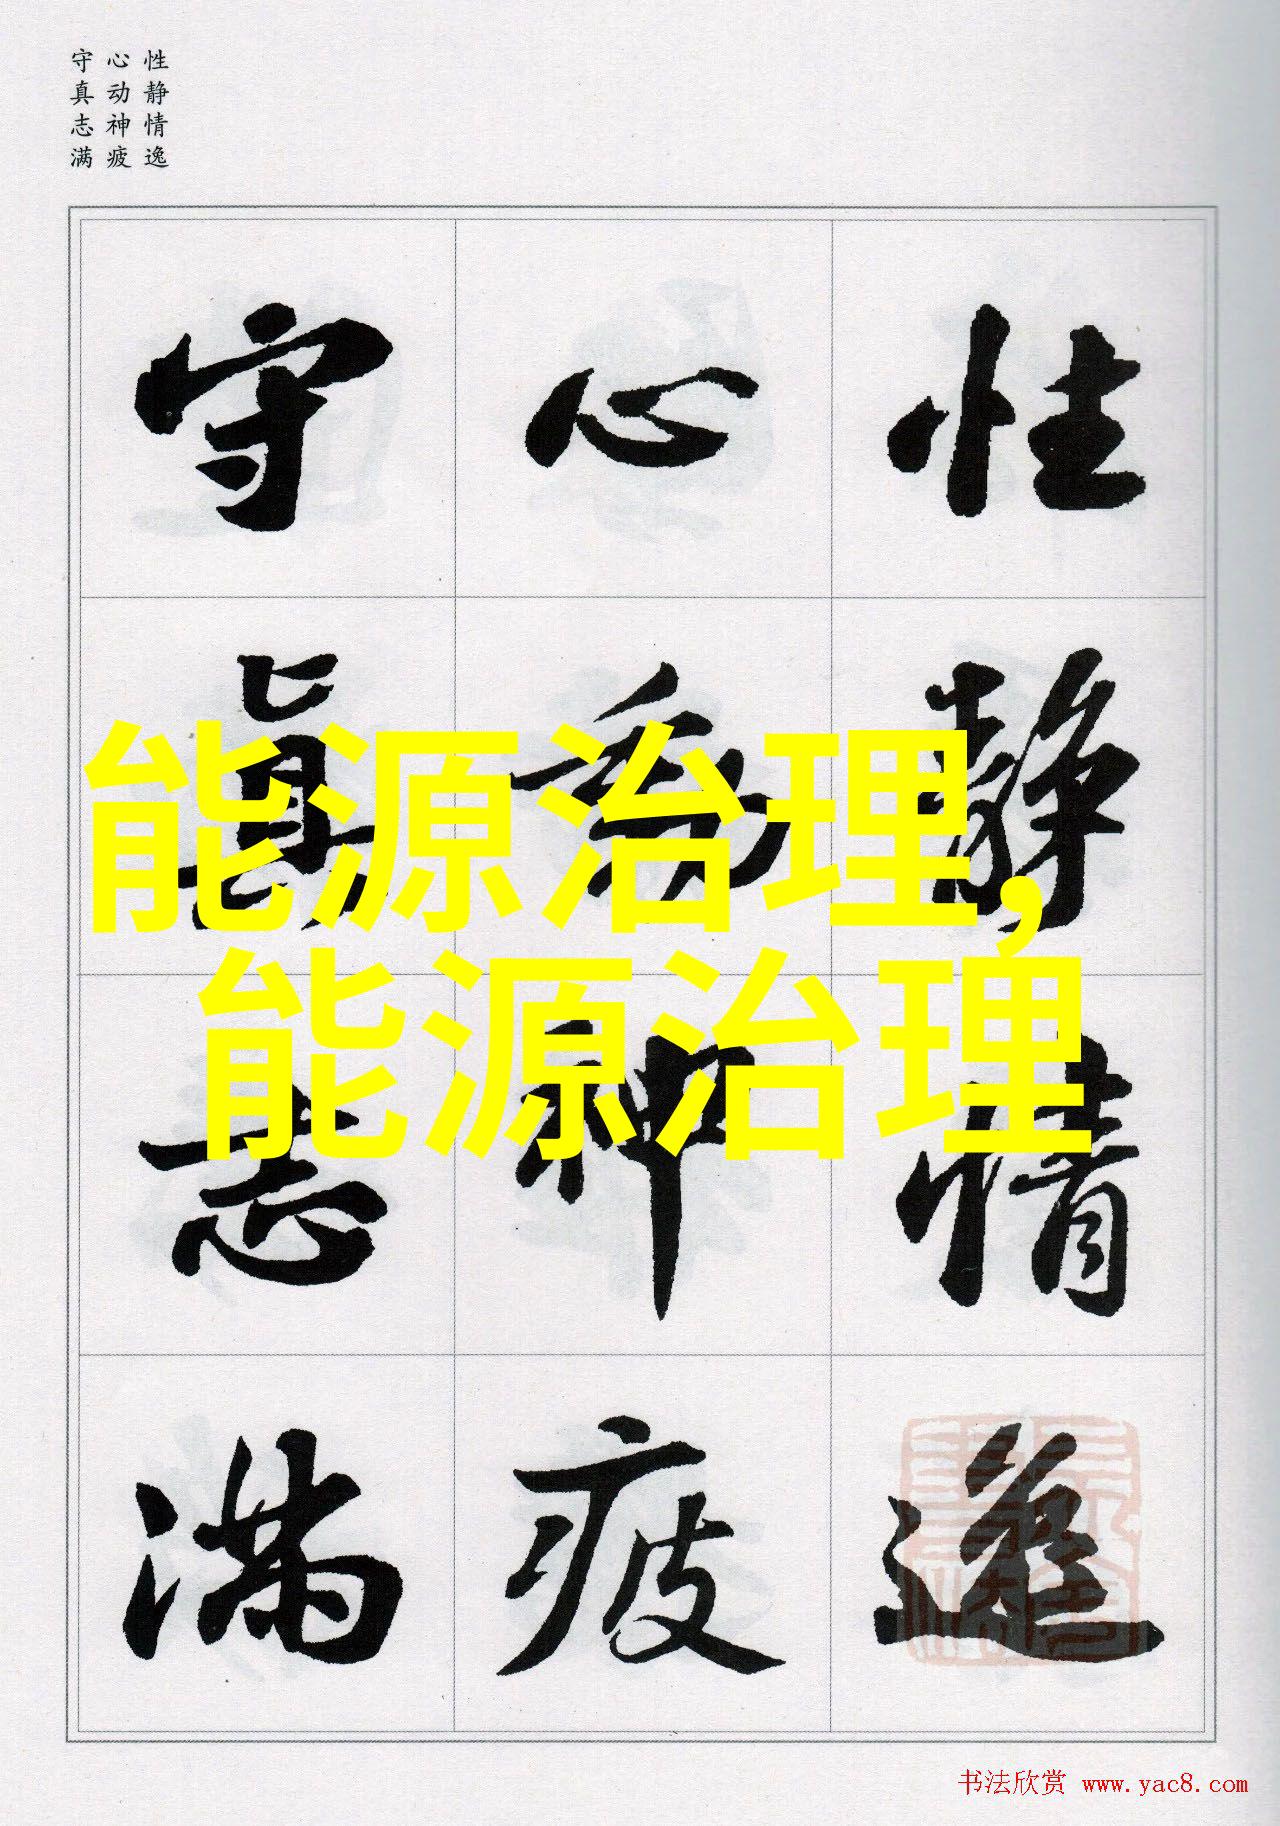 性静情逸
心动神疲
守真志满
性静情逸
心動神疲
守眞志满
能源治理,
能源治理
书法欣赏 www.yac8.com